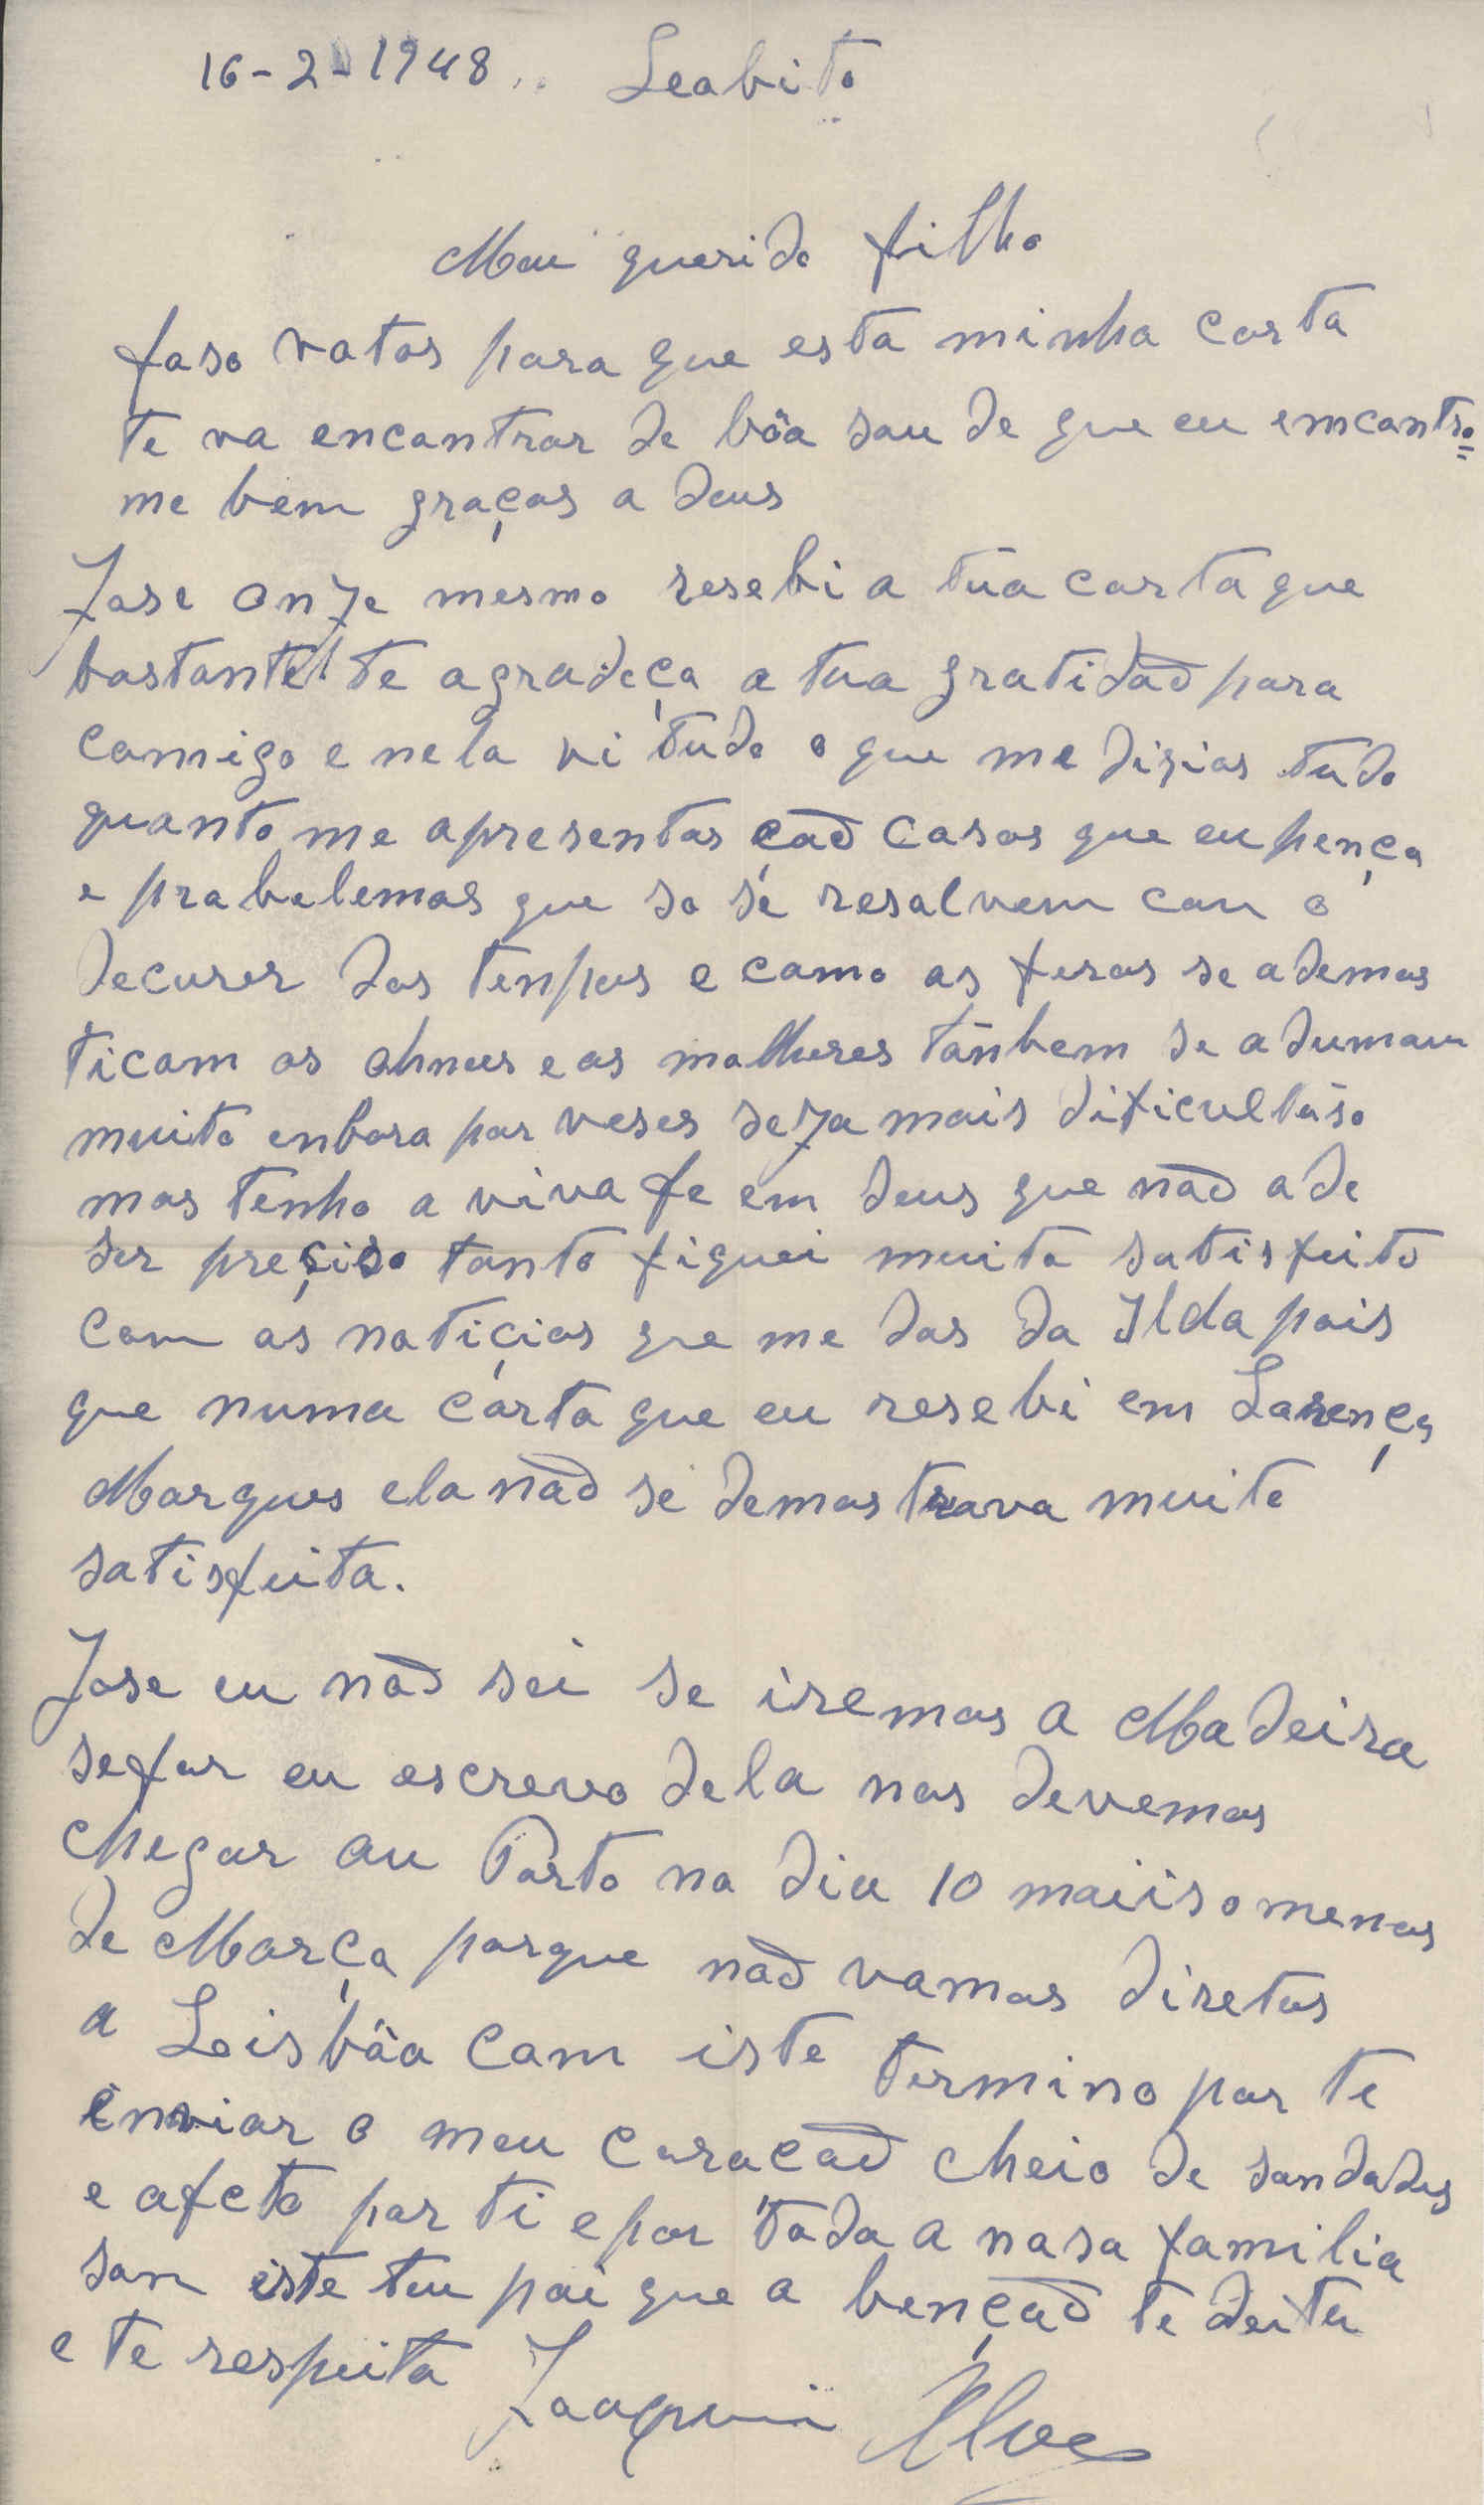 16-2-1948 Leabito
Meu querido filho
faso votos para que esta minha carta
te va encontrar de bôa saude que eu emcontro=
me bem graças a deus
Jose onje mesmo resebi a tua carta que
bastante te agradeço a tua gratidaõ para
comigo e nela vi tudo o que me dizias tudo
quanto me apresentas çaõ casos que eu penço
e probelemas que so se resolvem con o
decurer dos tenpos e como as feras se ademos
ticam os ohmens e as molheres tãnbem se adumam
muito enbora por veses seja mais dificultuso
mas tenho a viva fe em deus que naõ a de
ser preçiso tanto fiquei muito satisfeito
com as notiçias que me das da Ilda pois
que numa carta que eu resebi em Lorenço
Marques ela naõ se demostrava muito
satisfeita.
Jose eu naõ sei se iremos a Madeira
sefor eu escrevo dela nos devemos
chegar au Porto no dia 10 maiis o menos
de Março porque naõ vamos diretos
a Leisbôa com iste termino por te
enviar o meu coracaõ cheio de saudades
e afeto por ti e por toda a nosa familia
sou este teu pai que a bençaõ te deita
e te respeita Joaquim Alves